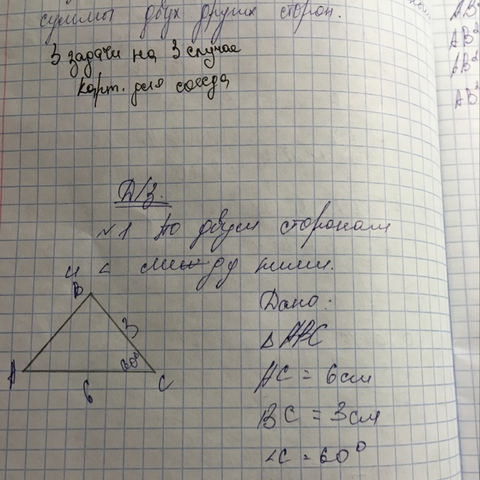 суммы двух других сторон.
3 задачи на 3 случае
карт. для соседа
Д/З.
№1 По двум сторонам
и < между ними.
B
3
60°
A
6
C
Дано:
△ ABC
AC = 6см
BC = 3см
<C = 60°
AB
AB²
AB²
AB²